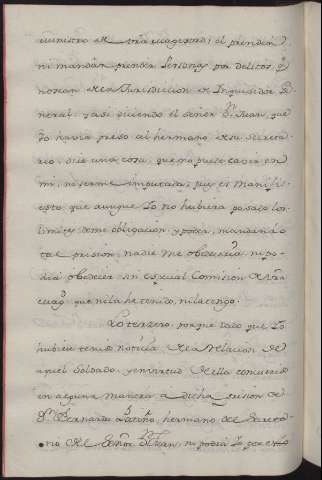 ministro de Vra magestad; el prender,
ni mandar prender Personas por delitos, q̃
no sean de la Jurisdiccion de Inquisidor Ge-
neral; y asi diciendo el señor Dn Juan, que
Yo havia preso al hermano de su Secreta-
rio, dice una cosa, que no puede caver en
mi, ni serme imputada; pues es manifi-
esto que aunque Yo no hubiera pasado los
limites de mi obligacion, y poder, mandando
tal prision, nadie me obedeciera, ni po-
dia obedecer sin especial Comision de Vra
magd que ni la he tenido, ni la tengo.
Lo terzero, porque dado que Yo
hubiese tenido noticia de la relacion de
aquel Soldado, y en virtud de ella concurrido
en alguna manera a dicha prision de
Dn Bernardo Patiño, hermano del Secreta-
rio del Señor Dn Juan, ni podia Yo por esto